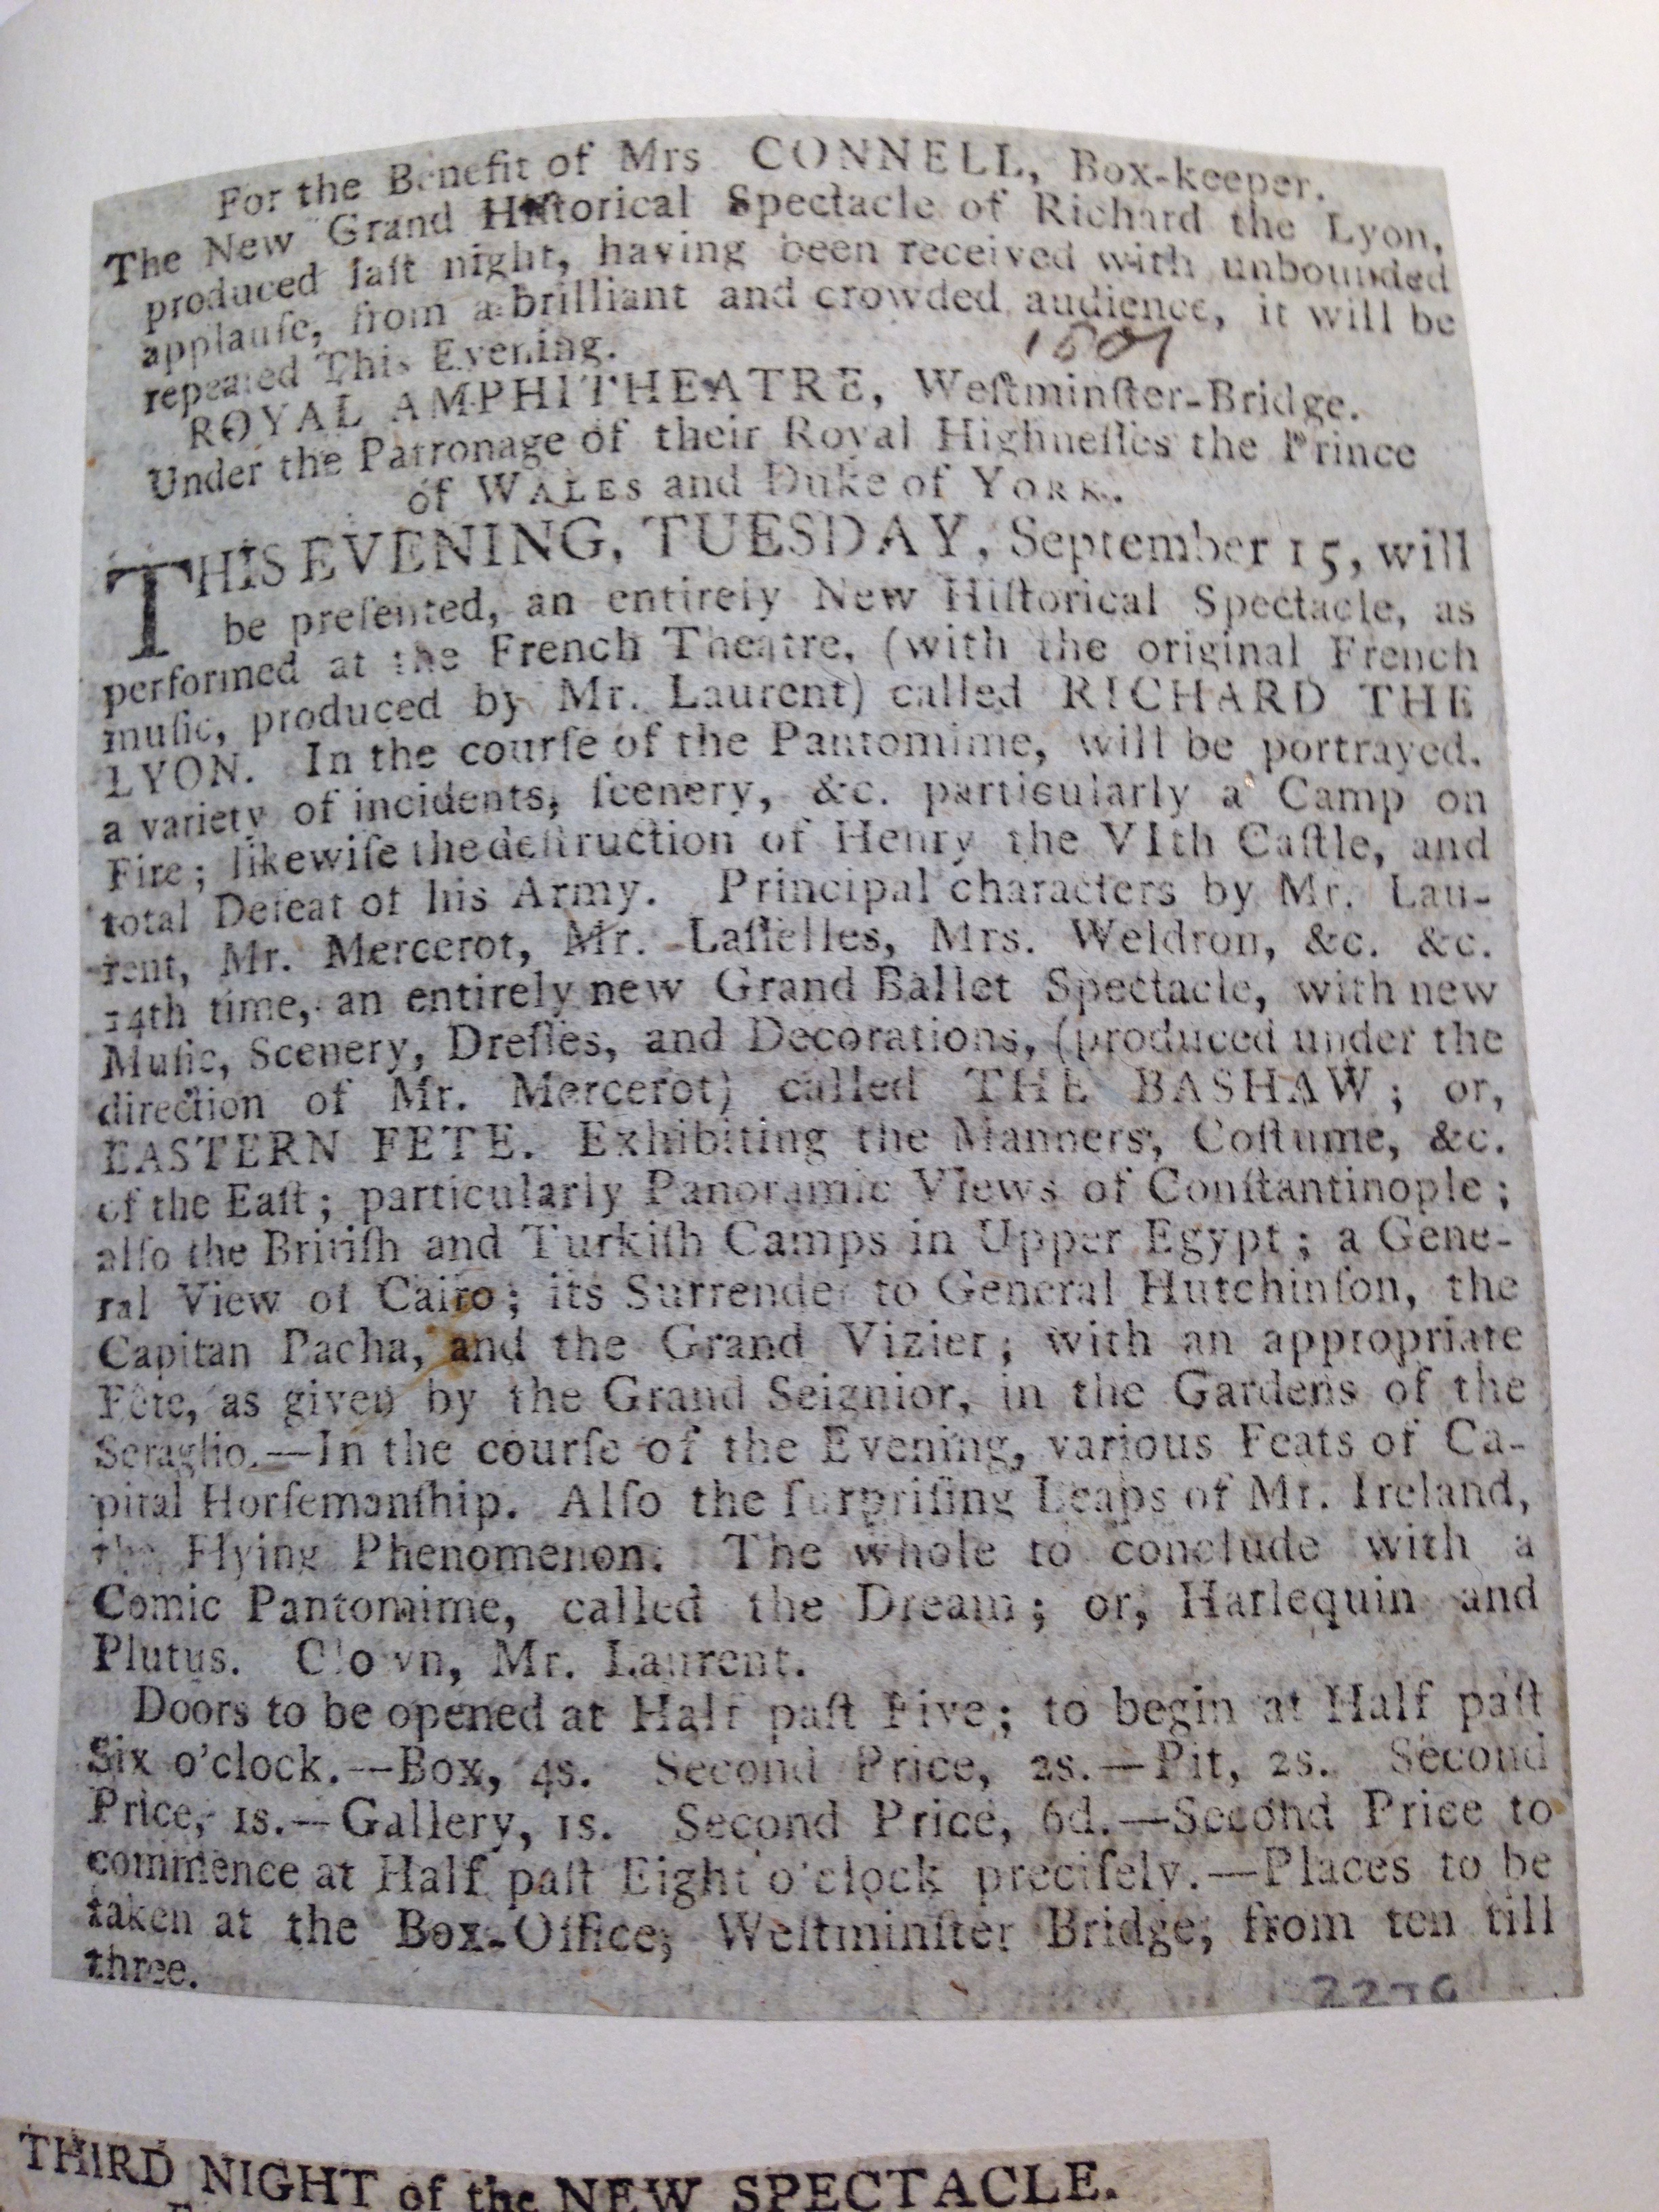 For the Benefit of Mrs CONNELL, Box-keeper.
The New Grand Hiſtorical Spectacle of Richard the Lyon,
produced laſt night, having been received with unbounded
applauſe, from a brilliant and crowded audience, it will be
repeated This Evening.
1801
ROYAL AMPHITHEATRE, Weſtminſter-Bridge.
Under the Patronage of their Royal Highneſſes the Prince
of WALES and Duke of YORK.
THIS EVENING, TUESDAY, September 15, will
be preſented, an entirely New Hiſtorical Spectacle, as
performed at the French Theatre, (with the original French
muſic, produced by Mr. Laurent) called RICHARD THE
LYON. In the courſe of the Pantomime, will be portrayed.
a variety of incidents, ſcenery, &c. particularly a Camp on
Fire; likewiſe the deſtruction of Henry the VIth Caſtle, and
total Defeat of his Army. Principal characters by Mr. Lau-
rent, Mr. Mercerot, Mr. Laſſelles, Mrs. Weldron, &c. &c.
14th time, an entirely new Grand Ballet Spectacle, with new
Muſic, Scenery, Dreſſes, and Decorations, (produced under the
direction of Mr. Mercerot) called THE BASHAW; or,
EASTERN FETE. Exhibiting the Manners, Coſtume, &c.
of the Eaſt; particularly Panoramic Views of Conſtantinople;
alſo the Britiſh and Turkiſh Camps in Upper Egypt; a Gene-
ral View of Cairo; its Surrender to General Hutchinſon, the
Capitan Pacha, and the Grand Vizier; with an appropriate
Fête, as given by the Grand Seignior, in the Gardens of the
Seraglio.—In the courſe of the Evening, various Feats of Ca-
pital Horſemanſhip. Alſo the ſurpriſing Leaps of Mr. Ireland,
the Flying Phenomenon. The whole to conclude with a
Comic Pantomime, called the Dream; or, Harlequin and
Plutus. Clown, Mr. Laurent.
Doors to be opened at Half paſt Five; to begin at Half paſt
Six o'clock.—Box, 4s. Second Price, 2s.—Pit, 2s. Second
Price, 1s.—Gallery, 1s. Second Price, 6d.—Second Price to
commence at Half paſt Eight o'clock preciſely.—Places to be
taken at the Box-Office, Weſtminſter Bridge, from ten till
three.
THIRD NIGHT of the NEW SPECTACLE.